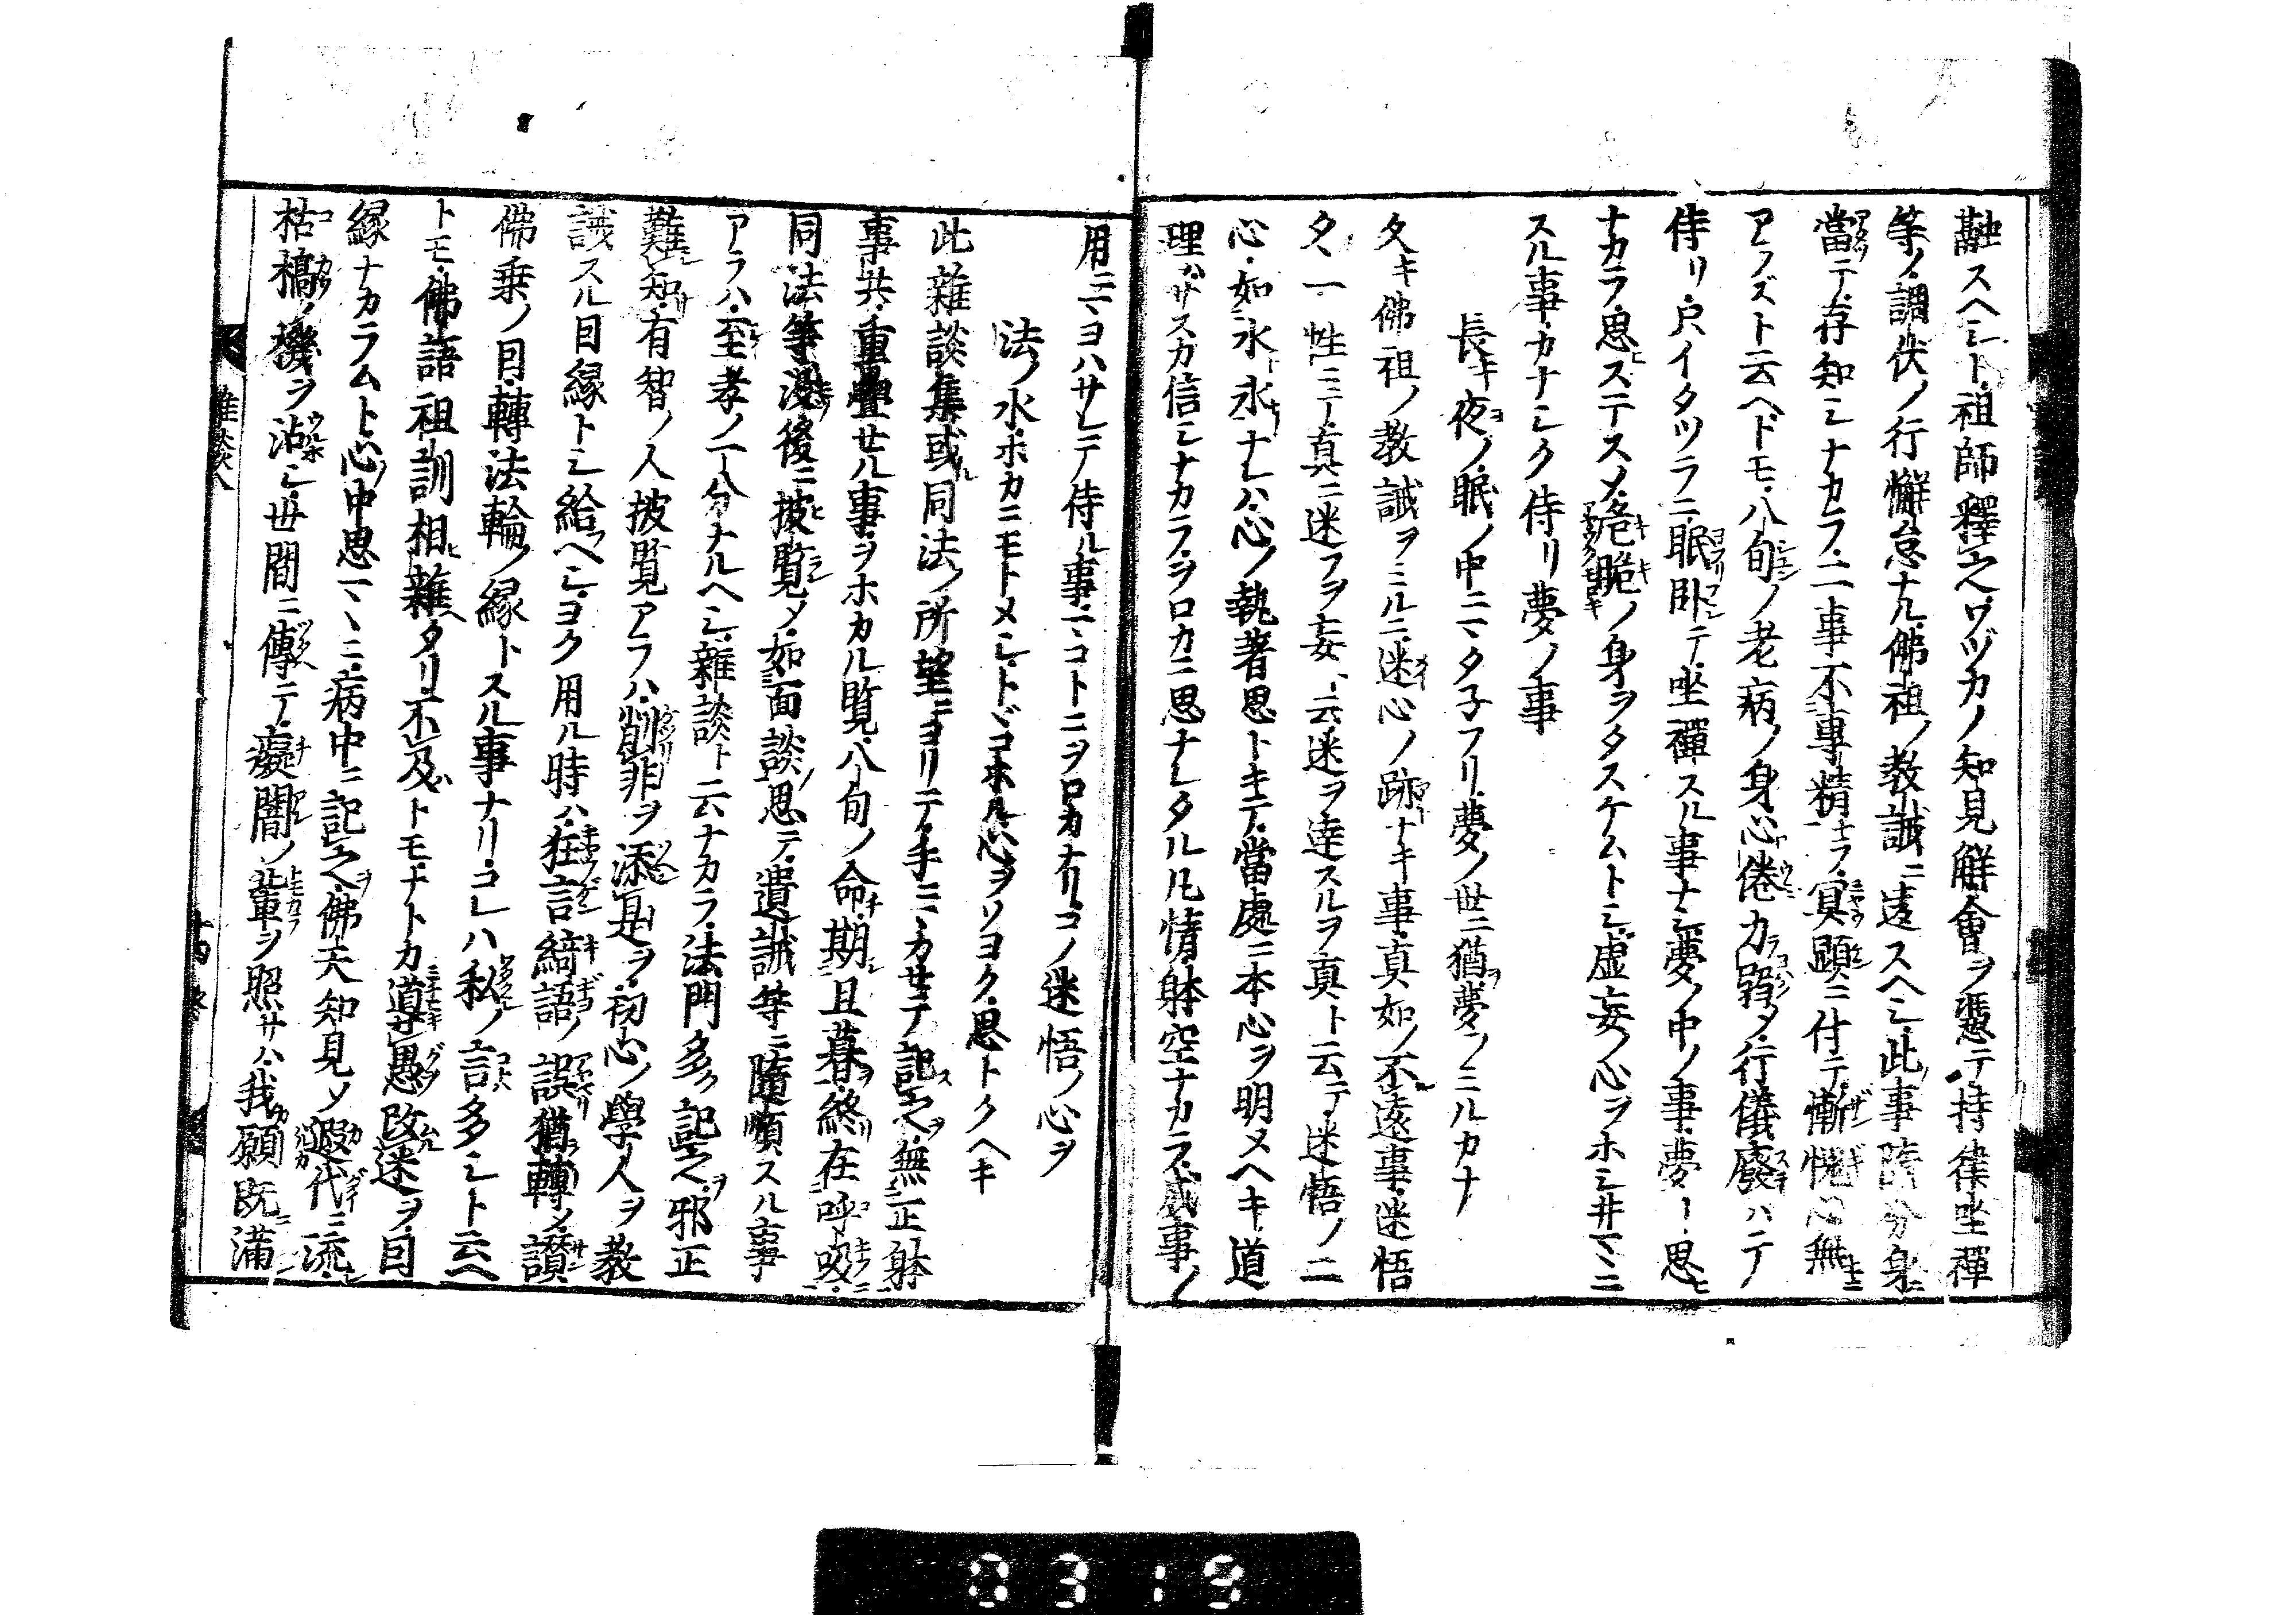 融スヘシト祖師釋之ヘワヅカノ知見解會ヲ憑テ持律坐禪
等ノ調伏ノ行懈怠ナル佛祖ノ教誡ニ違スヘシ此事隨分身ニ
當テ存知シナカラ二事不專精ナラ冥顯ニ付テ慚愧心無キニ
アラズト云ヘドモ八旬ノ老病ノ身心倦カ弱メ行儀廢ハテ
侍リ只イタツラニ眠臥テ坐禪スル事ナシ夢ノ中ノ事夢ト思
ナカラ思ステスメ危脆ノ身ヲタスケムトシ虚妄ノ心ヲホシヰマヽニ
スル事カナシク侍リ夢ノ事
長キ夜ノ眠ノ中ニマタ子フリ夢ノ世ニ猶夢ヲミルカナ
又キ佛祖ノ教誡ヲミルニ迷心ノ跡ナキ事真如ノ不遠事迷悟
タヽ一性ニシテ真ニ迷フヲ妄ト云迷ヲ達スルヲ真ト云テ迷悟ノ二
心如水氷ナレハ心ノ執著思トキテ當處ニ本心ヲ明メヘキ道
理サスカ信シナカラヲロカニ思ナレタル凡情躰空ナカラ感事ノ
用ニマヨハサレテ侍ル事マコトニヲロカナリコノ迷悟ノ心ヲ
法ノ水ホカニモトメシトヾコホル心ヲソヨク思トクヘキ
此雜談集或同法ノ所望ニヨリテ手ニマカセテ記之無正躰
事共重疊セル事ヲホカル覧八旬ノ命期且暮終在呼吸
同法等没後ニ披覧メ如面談思テ遺誡等ニ隨順スル事
アラハ至孝ノ一分ナルヘシ雜談ト云ナカラ法門多ク記之邪正
難知有智ノ人披覧アラハ削非ヲ添是ヲ初心ノ學人ヲ教
誡スル因縁トシ給ヘシヨク用ル時ハ狂言綺語ノ誤猶轉メ讃
佛乗ノ因轉法輪ノ縁トスル事ナリコレハ私ノ言多シト云ヘ
トモ佛語祖訓相雜タリ不及トモナトカ導愚改迷ヲ因
縁ナカラムト心中思マヽニ病中ニ記之佛天知見メ遐代ニ流
枯槁ノ機ヲ沾シ世間ニ傳ニテ癡闇ノ輩ヲ照サハ我願既滿
雜談
0319